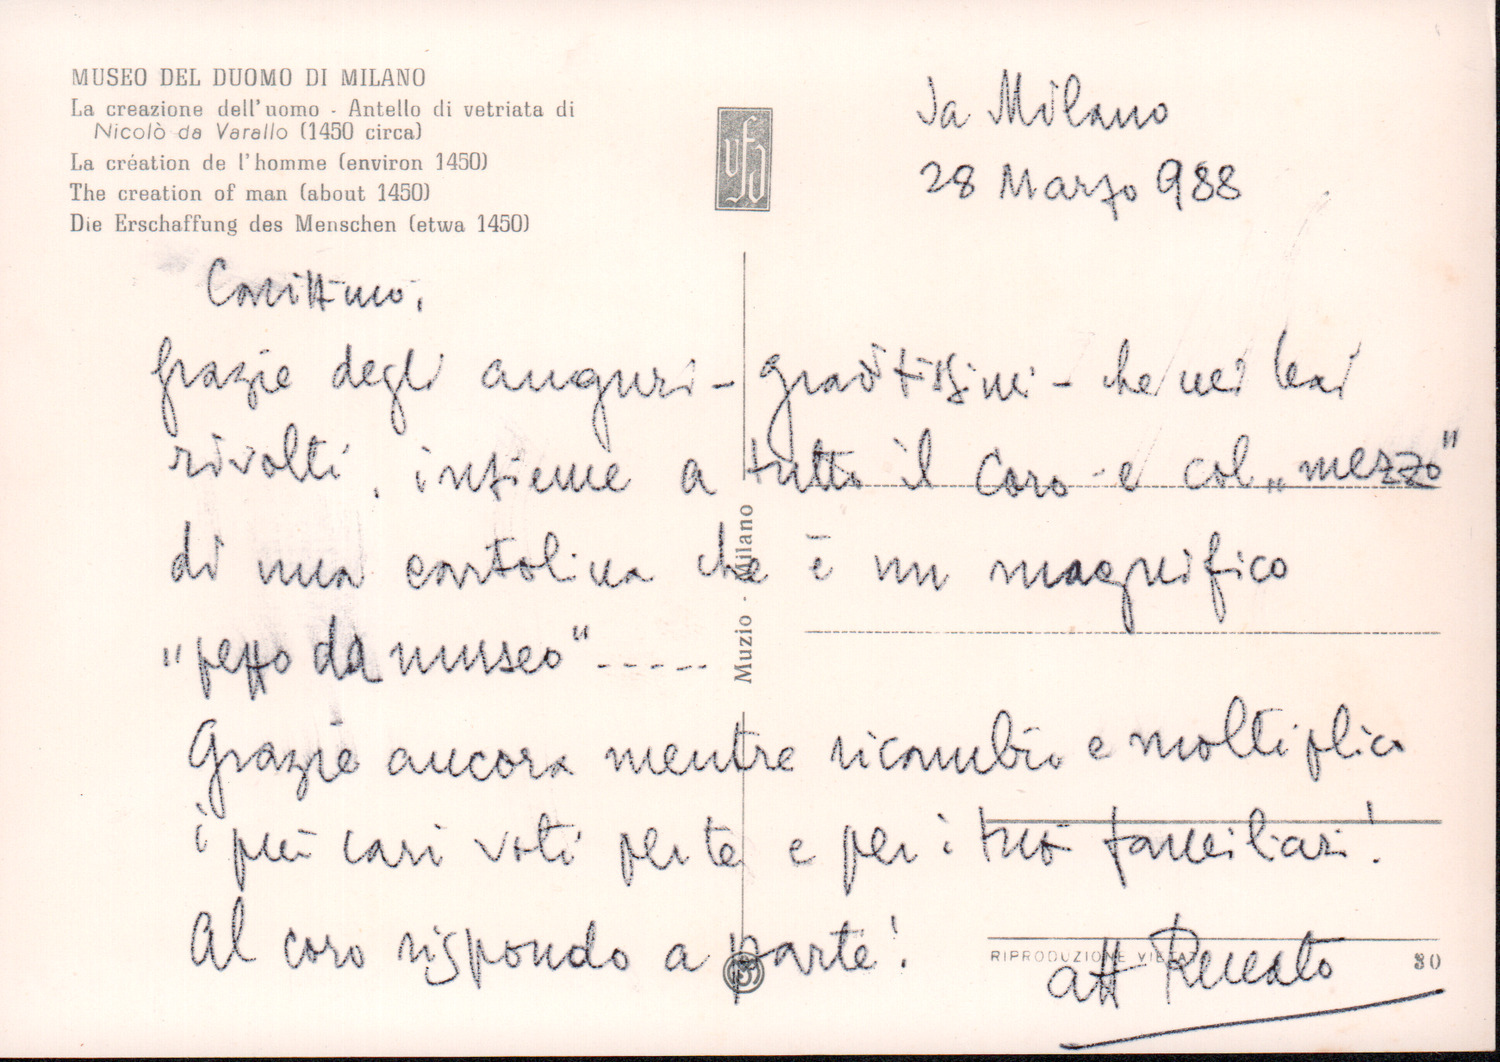 MUSEO DEL DUOMO DI MILANO
La creazione dell'uomo - Antello di vetriata di
Nicolò da Varallo (1450 circa)
La création de l'homme (environ 1450)
The creation of man (about 1450)
Die Erschaffung des Menschen (etwa 1450)
vfd
Da Milano
28 Marzo 988
Carissimo,
grazie degli auguri - graditissimi - che mi hai
rivolti, insieme a tutto il Coro - e col „mezzo"
di una cartolina che è un magnifico
„pezzo da museo" -----
Grazie ancora mentre ricambio e moltiplico
i più cari voti per te e per i tuoi familiari!
Al coro rispondo a parte!
aff Renato
Muzio - Milano
RIPRODUZIONE VIETATA
30